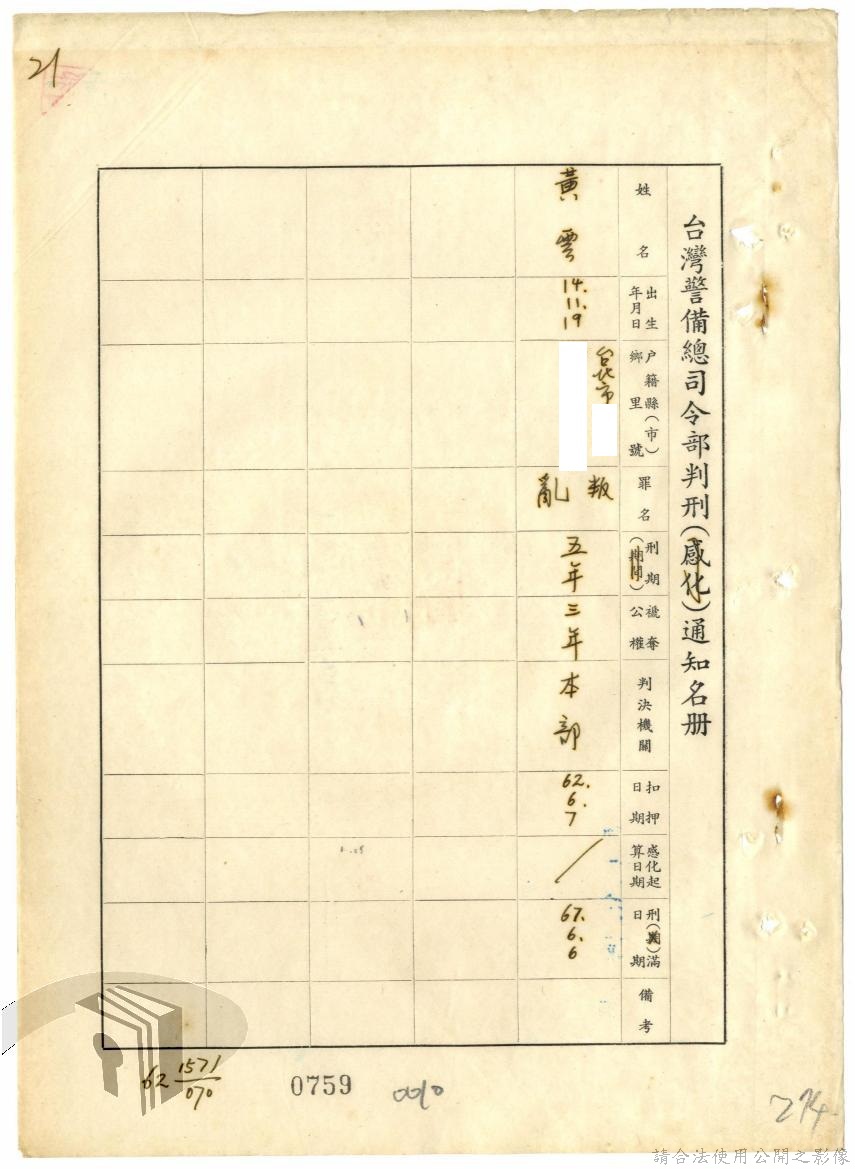 21
台灣警備總司令部判刑（感化）通知名册
姓名
黃雲
出生年月日
14.11.19
户籍縣（市）鄉里號
台北市
罪名
叛亂
刑期（期間）
五年
褫奪公權
三年
判決機關
本部
扣押日期
62.6.7
感化起算日期
刑（期）滿日期
67.6.6
備考
62 1571/070
0759
0010
274
請合法使用公開之影像